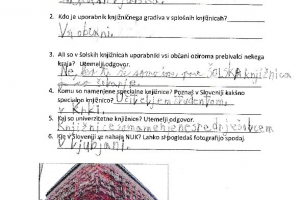 2. Kdo je uporabnik knjižničnega gradiva v splošnih knjižnicah?
Vsi občani.
3. Ali so v šolskih knjižnicah uporabniki vsi občani oziroma prebivalci nekega
kraja? Utemelji odgovor.
Ne,
ŠOLSKA knjižnica
4. Komu so namenjene specialne knjižnice? Poznaš v Sloveniji kakšno
specialno knjižnico? Učiteljem, študentom,
v Krki.
5. Kaj so univerzitetne knjižnice? Utemelji odgovor.
Knjižnice so namenjene
6. Kje v Sloveniji se nahaja NUK? Lahko si pogledaš fotografijo spodaj.
V Ljubljani.